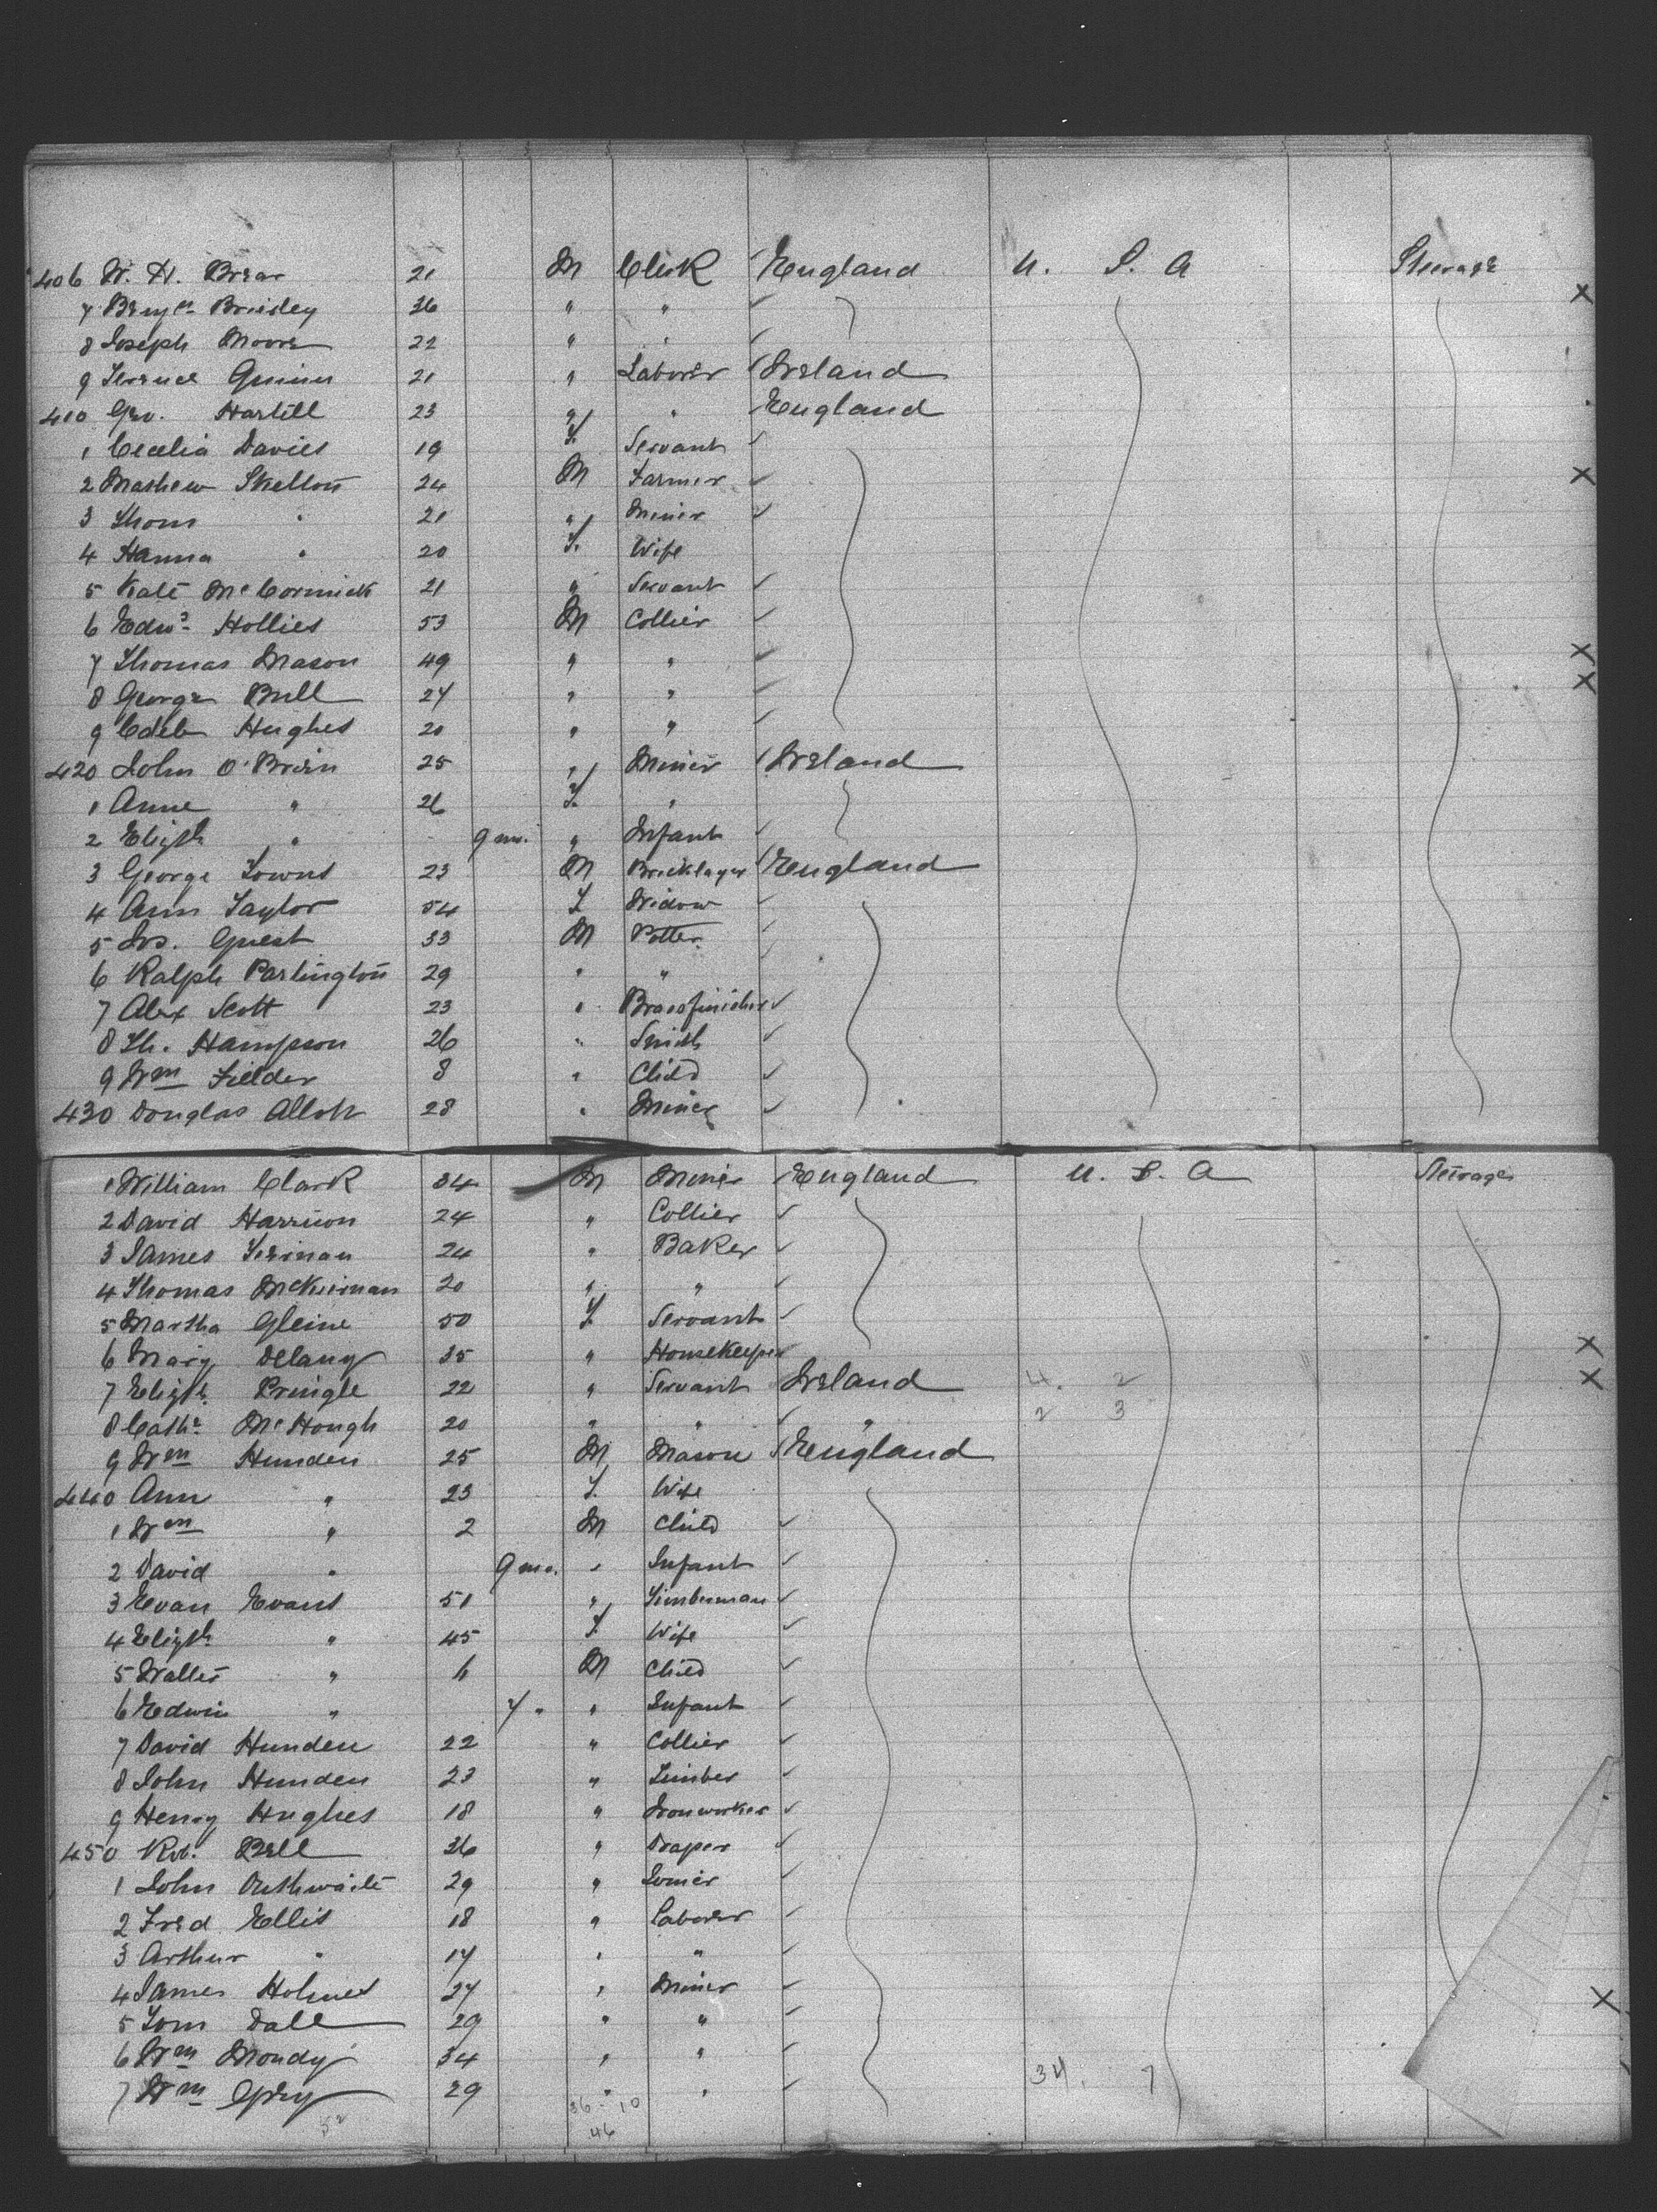 406 W. H. Brear 21 M Clerk England U. S. A Steerage
7 Benjn Briesley 36 " " ✓ X
8 Joseph Moore 22 " " ✓
9 Terence Quinn 21 " Laborer Ireland
410 Geo. Hartill 23 " " England
1 Cecelia Davies 19 F. Servant ✓
2 Mathew Skelton 24 M Farmer ✓ X
3 Thom " 21 " Miner ✓
4 Hanna " 20 F. Wife
5 Kate McCormick 21 " Servant ✓
6 Edwd Hollies 53 M Collier ✓
7 Thomas Mason 49 " " ✓ X
8 George Bull 24 " " ✓ X
9 Caleb Hughes 20 " " ✓
420 John O'Brien 25 " Miner Ireland
1 Anne " 26 F. "
2 Elizth " 9 mo. " Infant ✓
3 George Towns 23 M Bricklayer England
4 Ann Taylor 54 F Widow ✓
5 Jos. Guest 33 M Potter ✓
6 Ralph Partington 29 " "
7 Alex Scott 23 " Brassfinisher ✓
8 Th. Hampson 26 " Smith ✓
9 Wm Fielder 8 " Child ✓
430 Douglas 28 " Miner ✓
1 William Clark 34 M Miner England U. S. A Steerage
2 David Harrison 24 " Collier ✓
3 James 24 " Baker ✓
4 Thomas McKiernan 20 " " ✓
5 Martha Gleine 50 F. Servant ✓
6 Mary Delany 35 " Housekeeper X
7 Elizth Pringle 22 " Servant Ireland 4. 2 X
8 Cathe McHough 20 " " ✓ " 2 3
9 Wm Hunden 25 M Mason England
440 Ann " 23 F. Wife
1 Wm " 2 M Child ✓
2 David " 9 mo. " Infant ✓
3 Evan Evans 51 " Timberman ✓
4 Elizth " 45 F. Wife ✓
5 Walter " M Child ✓
6 Edwin " 7 " " Infant ✓
7 David Hunden 22 " Collier ✓
8 John Hunden 23 " Timber ✓
9 Henry Hughes 18 " Ironworker ✓
450 Rob. Bell 36 " Draper ✓
1 John Outhwaite 29 " Joiner ✓
2 Fred Ellis 18 " Laborer ✓
3 Arthur " 17 " " ✓
4 James Holmes 27 " Miner ✓ X
5 Tom Dall 29 " " ✓
6 Wm Mondy 34 " " ✓
7 Wm Gpry 29 " " ✓ 34. 7
52 36 - 10
46